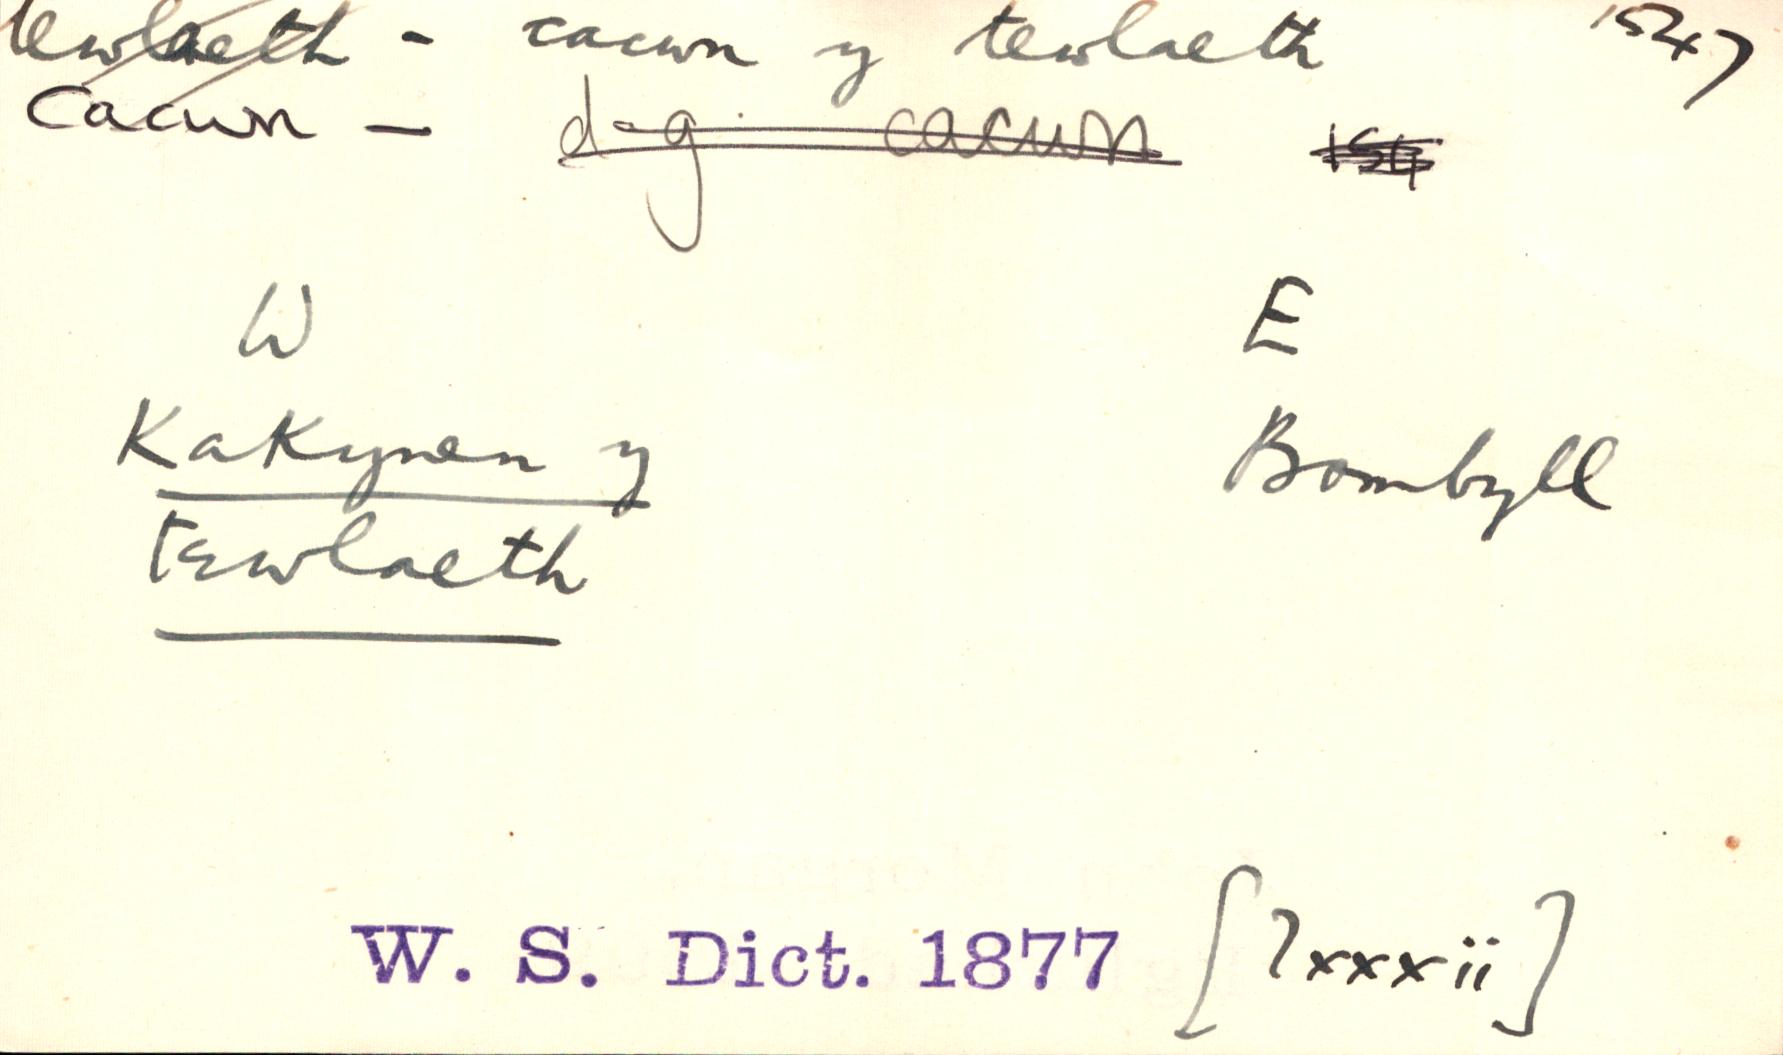 tewlaeth - cacwn y tewlaeth 1547
Cacwn - d.g. cacwn 154
W E
Kakynen y Bombyll
tewlaeth
W. S. Dict. 1877 [lxxxii]